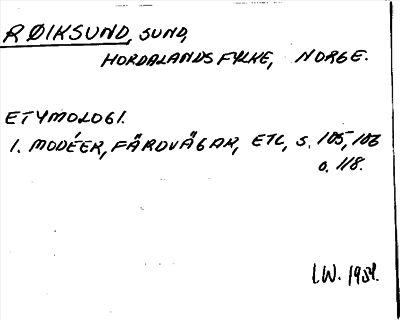 RØIKSUND, SUND,
HORDALANDS FYLKE, NORGE.
ETYMOLOGI.
1. MODÉER, FÄRDVÄGAR, ETC, S. 105, 106
o. 118.
LW. 1984.